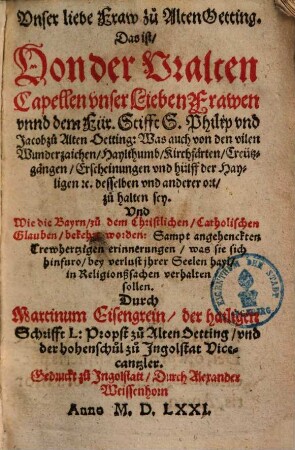 Vnser liebe Fraw zů Alten Oetting.
Das ist /
Von der Vralten
Capellen vnser Lieben Frawen
vnnd dem Für. Stifft S. Philip vnd
Jacobzů Alten Oetting: Was auch von den vilen
Wunderzaichen / Haylthumb / Kirchfärten / Creütz-
gängen / Erscheinungen vnd hülff der Hay-
ligen ꝛc. desselben vnd anderer ort /
zů halten sey.
Vnd
Wie die Bayrn / zů dem Christlichen / Catholischen
Glauben / bekehrt worden: Sampt angehenckten
Trewhertzigen erinnerungen / was sie sich
hinfuro / bey verlust jhrer Seelen hayl /
in Religionssachen verhalten
sollen.
Durch
Martinum Eisengrein / der hailigen
Schrifft L: Propst zů Alten Oetting / vnd
der hohenschůl zů Ingolstat Vice-
cantzler.
Gedruckt zů Ingolstatt / Durch Alexander
Weissenhorn
Anno M. D. LXXI.
DER STADT